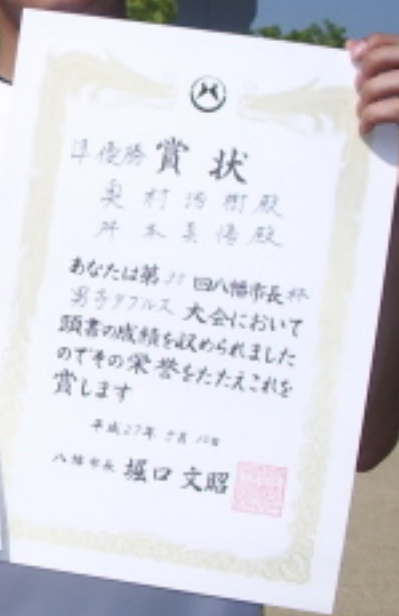 準優勝 賞状
奥村治樹殿
舛本真悟殿
あなたは第 回八幡市長杯
男子ダブルス大会において
頭書の成績を収められました
のでその栄誉をたたえこれを
賞します
平成27年5月10日
八幡市長 堀口文昭